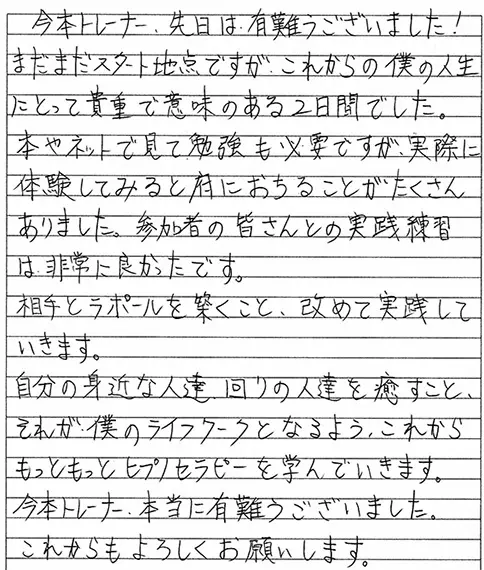 今本トレーナー、先日は有難うございました！
まだまだスタート地点ですが、これからの僕の人生
にとって貴重で意味のある2日間でした。
本やネットで見て勉強も必要ですが、実際に
体験してみると府におちることがたくさん
ありました。参加者の皆さんとの実践練習
は、非常に良かったです。
相手とラポールを築くこと、改めて実践して
いきます。
自分の身近な人達、回りの人達を癒すこと、
それが、僕のライフワークとなるよう、これから
もっともっとヒプノセラピーを学んでいきます。
今本トレーナー、本当に有難うございました。
これからもよろしくお願いします。